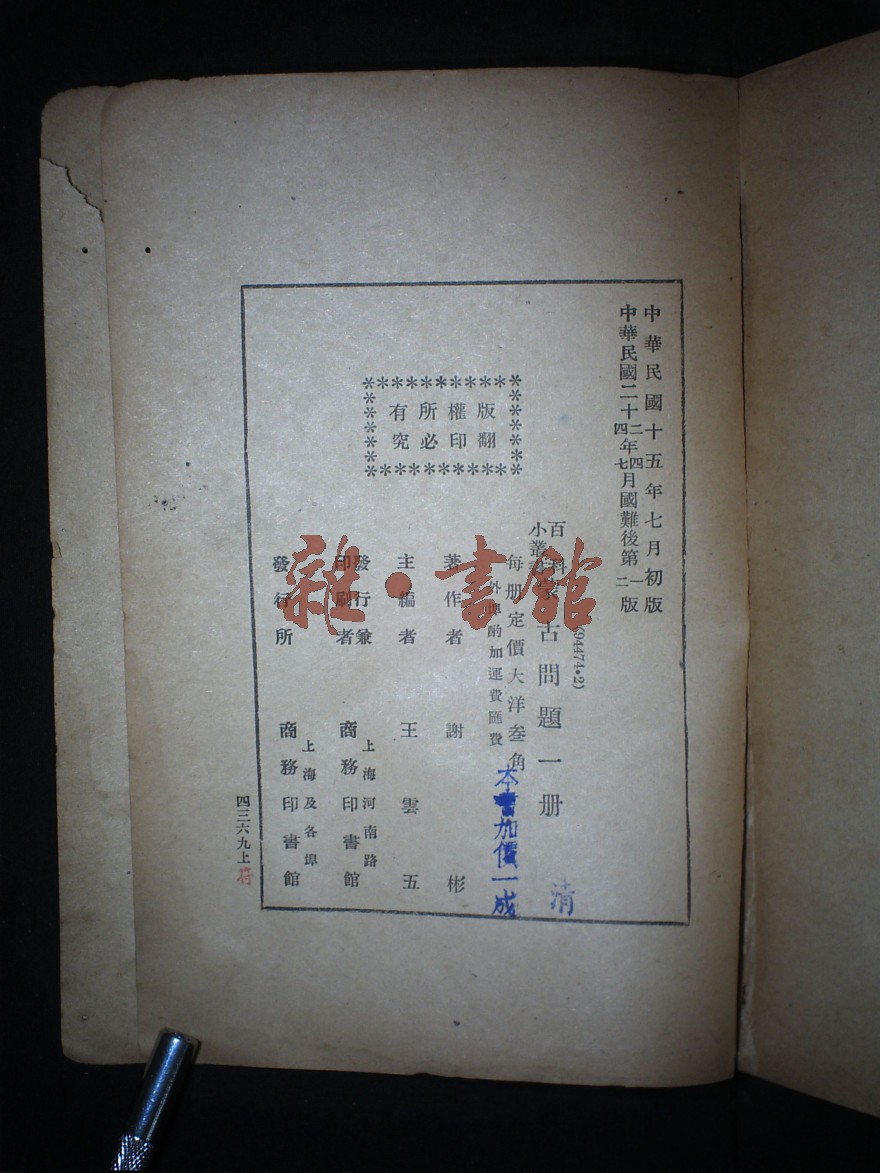 中華民國十五年七月初版
中華民國二十二四年四七月國難後第一二版
版權所有
翻印必究
(94474·2)
百科
小叢書
蒙古問題一册
每册定價大洋叁角
外埠酌加運費匯費
本書加價一成
清
著作者 謝彬
主編者 王雲五
發行兼
印刷者
上海河南路
商務印書館
發行所
上海及各埠
商務印書館
四三六九上
雜·書館